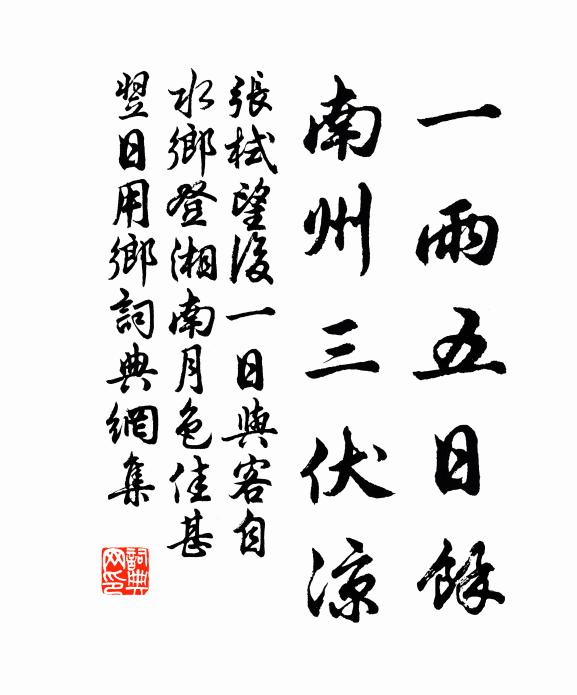 一雨五日餘
南州三伏涼
張栻望後一日與客自
水鄉登湘南月色佳甚
翌日用鄉詞典網集
詞典网印